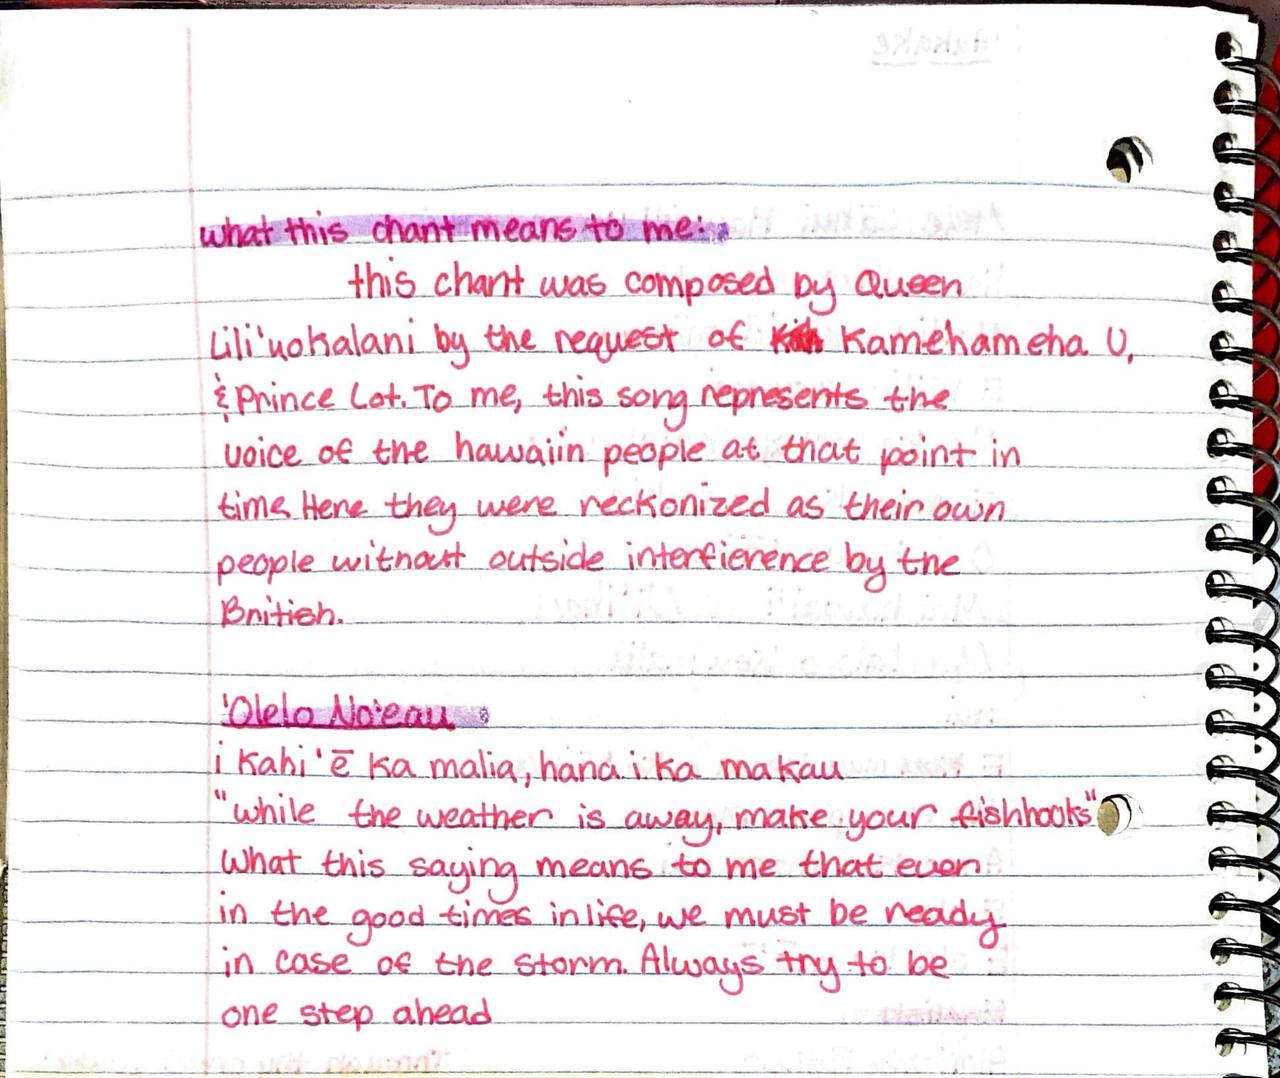 what this chant means to me:
this chant was composed by Queen
Lili'uokalani by the request of Kamehameha V,
& Prince Lot. To me, this song represents the
voice of the hawaiin people at that point in
time. Here they were reckonized as their own
people without outside interfierence by the
British.
'Olelo No'eau
i Kahi 'ē ka malia, hana i ka makau
"while the weather is away, make your fishhooks"
What this saying means to me that even
in the good times in life, we must be ready
in case of the storm. Always try to be
one step ahead